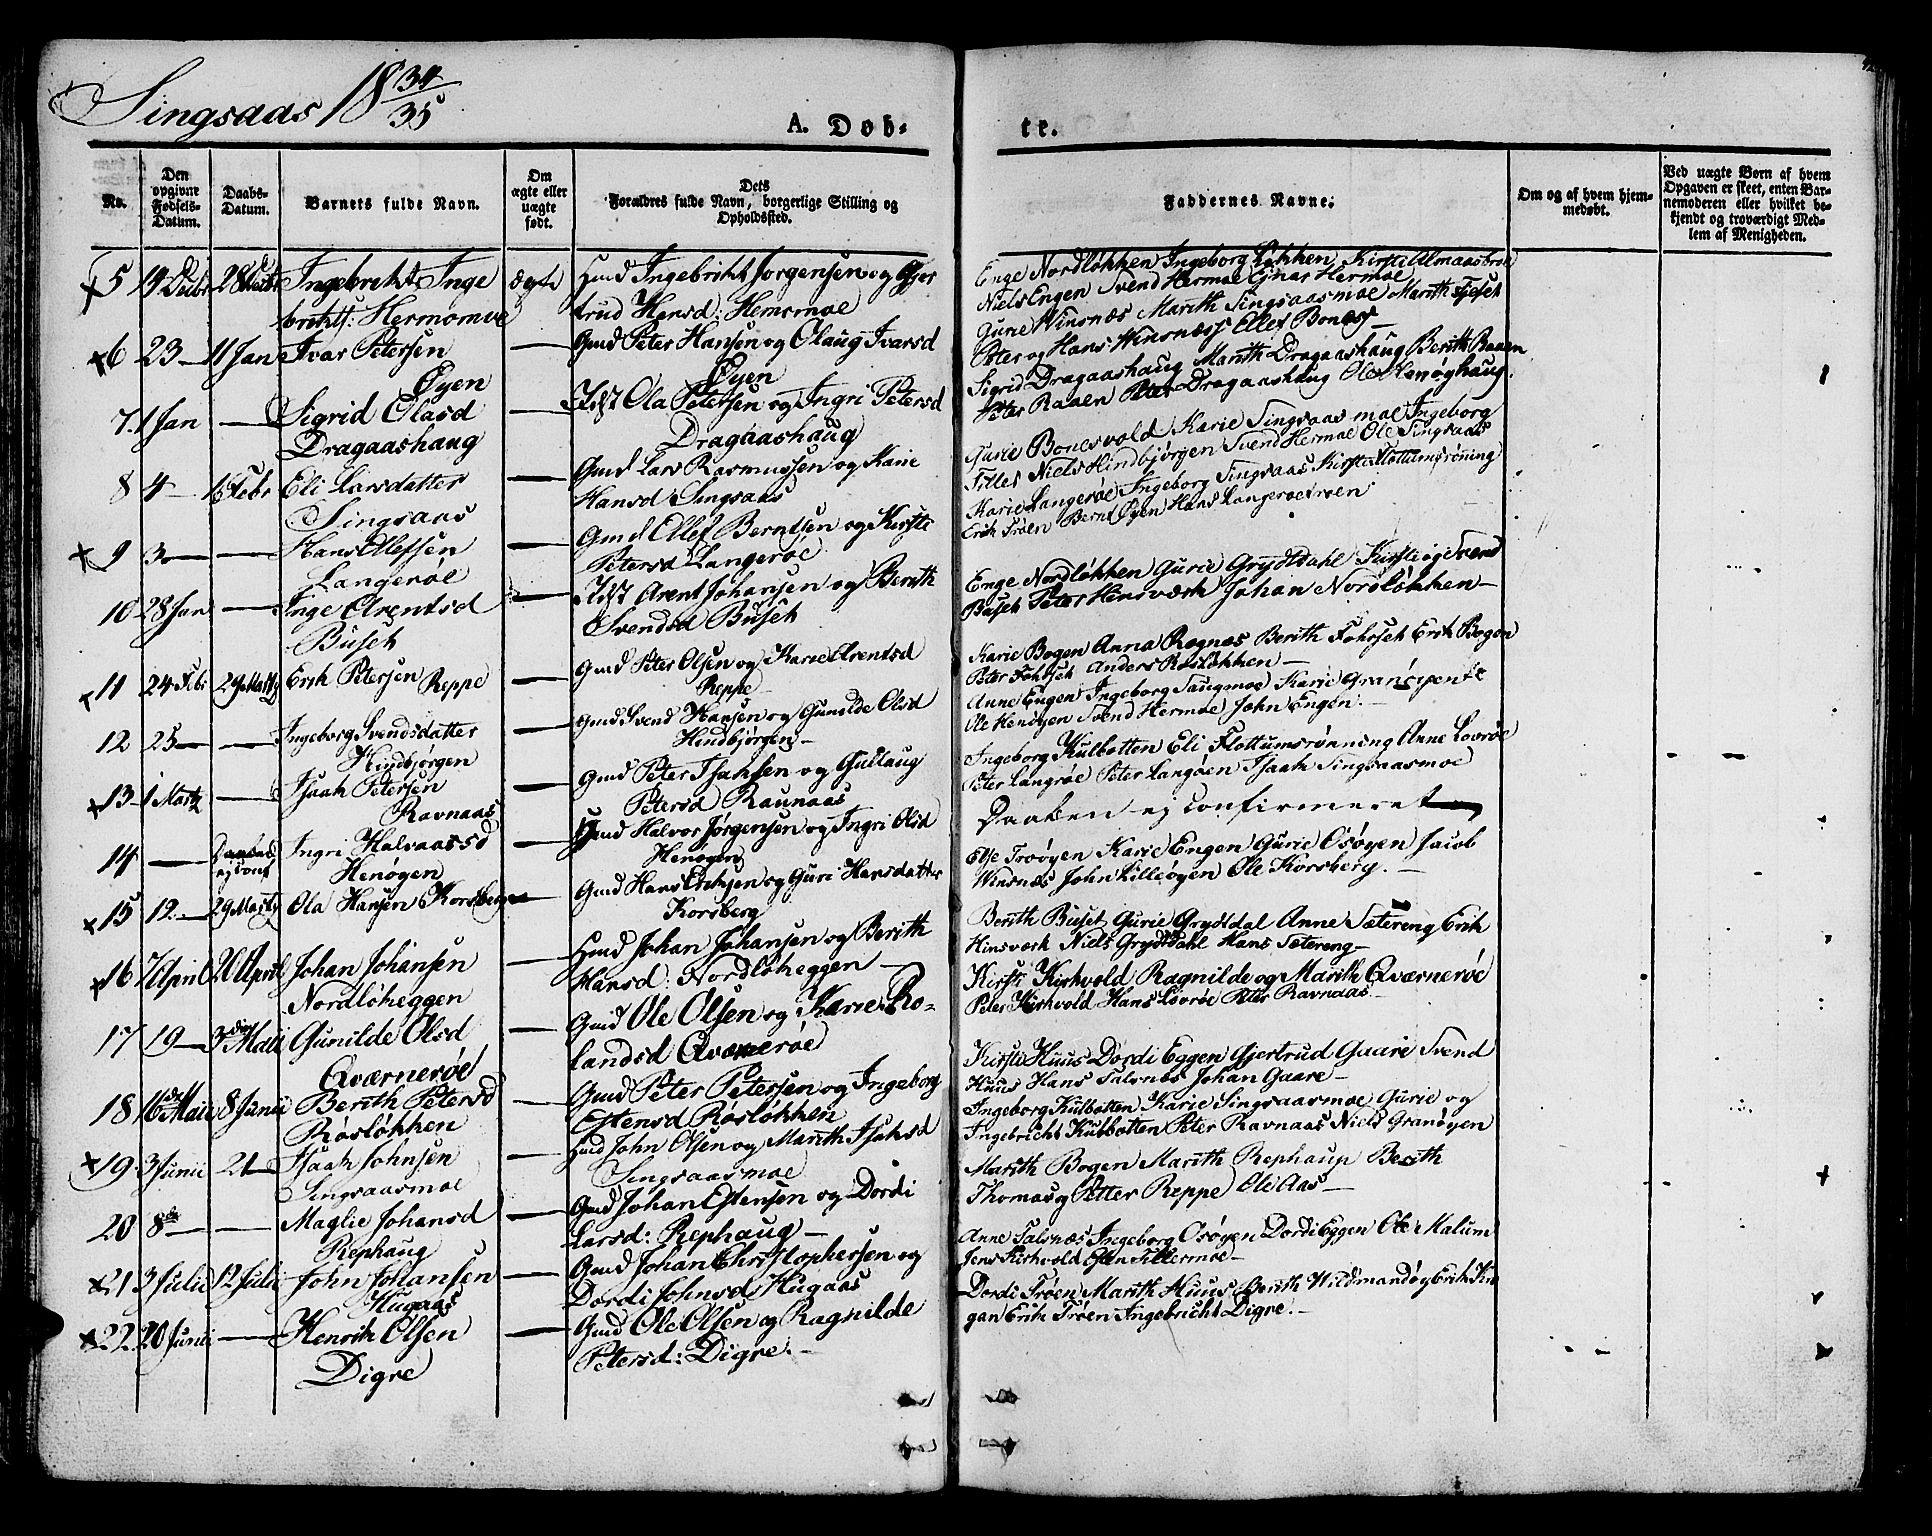 Singsaas 18 34/35
A. Døb-
te.
No.
Den opgivne Fødsels-Datum.
Daabs-Datum.
Barnets fulde Navn.
Om ægte eller uægte født.
Dets Forældres fulde Navn, borgerlige Stilling og Opholdssted.
Faddernes Navne.
Om og af hvem hjemmedøbt.
Ved uægte Børn af hvem Opgaven er skeet, enten Barnemoderen eller hvilket bekjendt og troværdigt Medlem af Menigheden.
5 19 Decbr 28 Decbr Ingebrikt Inge ægte Hmd Ingebrikt Jorgensen og Gjer
brikts: Hermomoe trud Hensd: Hemsmoe
Enge Nordløkken Ingeborg Løkken Kirsti Almaasbroe
Niels Engen Svend Hermoe Ejnar Hermoe
6 23 — 11 Jan Ivar Petersen — Gmd Peter Hansen og Olaug Ivarsd
Øyen Øyen
Gurie Winsnæs Marith Singsaasmoe Marith Fjeset
Peter og Hans Winsnæss Ellef Bones —
7. 1 Jan — Sigrid Olasd — Idst Ola Petersen og Ingri Petersd
Dragaashaug Dragaashaug
Sigrid Dragaashaug Marith Dragaashaug Berith Raaen
Peter Raaen Peter Dragaashaug Ole Henøyhaug.
8 4 — 15 Febr Eli Larsdatter — Gmd Lars Rasmussen og Karie
Singsaas Hansd Singsaas
Gurie Bonesvold Karie Singsaasmoe Ingeborg
Tilles Niels Hindbjørgen Svend Hermoe Ole Singsaas
9 3 — — Hans Ellefsen — Gmd Ellef Berntsen og Kirsti
Langerøe Petersd Langerøe
Karie Langerøe Ingeborg Singsaas Kirsti Flottumsrøning
Erik Trøen Bernt Øyen Hans Langeroe
10 28 Jan — Inge Arentsd — Idst Arent Johansen og Berith
Buseth Svendsd Buseth
Enge Nordløkken Gurie Grydtdahl Kirsti og Svend
Buseth Peter Hinsværk Johan Nordløkken —
11 24 Febr 29 Martz Erik Petersen Reppe — Gmd Peter Olsen og Karie Arentsd
Reppe —
Karie Bogen Anna Rognæs Berith Fohrseth Erik Bogen
Peter Fohrseth Anders Røsløkken —
12 25 — — Ingeborg Svendsdatter — Gmd Svend Hansen og Gunilde Olsd
Hindbjørgen Hindbjørgen —
Anne Engen Ingeborg Haugmoe Karie Granøyen
Ole Henøyen Svend Hermoe John Engen. —
13 1 Martz — Isaak Petersen — Gmd Peter Isaksen og Gullaug
Ravnaas Petersd Raunaas
Ingeborg Kulbotten Eli Flottumsrønning Anne Lovrøe
Peter Langrøe Peter Langøen Isaak Singsaasmoe
14 — Daaben ej conf Ingri Halvaassd — Hmd Halvor Jørgensen og Ingri Olsd
Henøgen Henøgen
Daaben ej confirmeret
15 12. — 29 Martz Ola Hansen Korsberg — Gmd Hans Eriksen og Guri Hansdatter
Korsberg
Else Troøyen Karie Engen Gurie Osøyen Jacob
Winsnæs John Lilleøyen Ole Korsberg. —
16 7 April 20 April Johan Johansen — Hmd Johan Johansen og Berith
Nordløheggen Hansd: Nordløheggen —
Berith Buset Gurie Grydtdal Anne Sætereng Erik
Hinsværk Niels Grydtdahl Hans Sætereng —
17 19 — 3die Maii Gunilde Olsd — Gmd Ole Olsen og Karie Ro-
Qværnerøe landsd Qværnerøe
Kirsti Kirkvold Ragnilde og Marith Qværnerøe
Peter Kirkvold Hans Lovrøe Peter Ravnaas —
18 16 de Maii 8 Junii Berith Petersd — Gmd Peter Petersen og Ingeborg
Røsløkken Estensd Røsløkken
Kirsti Huus Dordi Eggen Gjertrud Gaare Svend
Huus Hans Talsnes Johan Gaare —
19. 3 Junii 21 — Isaak Johnsen — Hmd John Olsen og Marith Isaksd
Singsaasmoe Singsaasmoe
Ingeborg Kulbotten Karie Singsaasmoe Gurie og
Ingebricht Kulbotten Peter Ravnaas Niels Granøyen
20 8de — — Maglie Johansd — Gmd Johan Estensen og Dordi
Rephaug Larsd: Rephaug —
Marith Bogen Marith Rephaup Berith
Thomas og Petter Reppe Ole Aas —
21 3 Julii 12 Julii John Johansen — Gmd Johan Christophersen og
Hugaas Dordi Johnsd Hugaas
Anne Talsnæs Ingeborg Osøyen Dordi Eggen Ole Malum
Jens Kirkvold Esten Tillermoe —
22 20 Junii — Henrik Olsen — Gmd Ole Olsen og Ragnilde
Digre Petersd: Digre. —
Dordi Trøen Marith Huus Berith Wildmandøy Erik Kin
gan Erik Trøen Ingebricht Digre. —